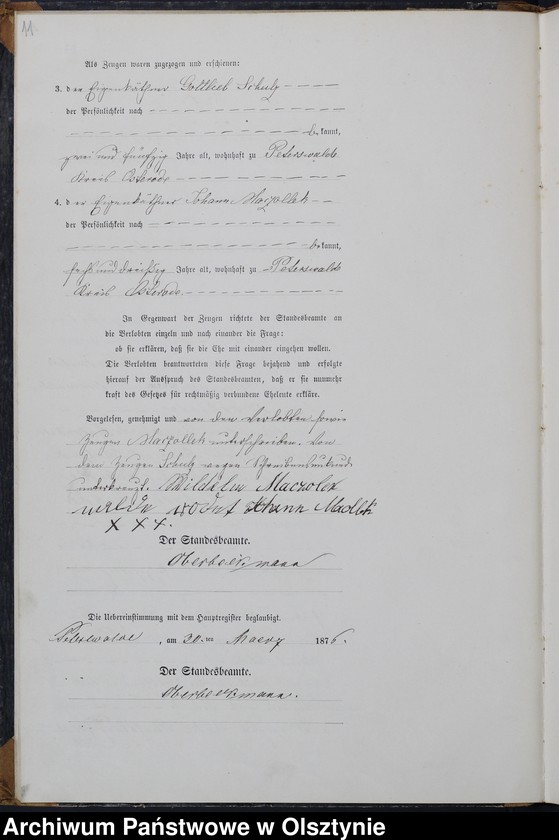 11
Als Zeugen waren zugezogen und erschienen:
3. der Eigenkäthner Gottlieb Schulz
der Persönlichkeit nach
bekannt,
zwei und fünfzig Jahre alt, wohnhaft zu Peterswalde
Kreis Osterode
4. der Eigenkäthner Johann Maczollek
der Persönlichkeit nach
bekannt,
sechs und dreißig Jahre alt, wohnhaft zu Peterswalde
Kreis Osterode.
In Gegenwart der Zeugen richtete der Standesbeamte an
die Verlobten einzeln und nach einander die Frage:
ob sie erklären, daß sie die Ehe mit einander eingehen wollen.
Die Verlobten beantworteten diese Frage bejahend und erfolgte
hierauf der Ausspruch des Standesbeamten, daß er sie nunmehr
kraft des Gesetzes für rechtmäßig verbundene Eheleute erkläre.
Vorgelesen, genehmigt und von den Verlobten sowie
Zeugen Maczollek unterschrieben. Von
dem Zeugen Schulz wegen Schreibensunkunde
unterkreuzt. Wilhelm Maczolek
Johann
X X X.
Der Standesbeamte.
Oberbeckmann
Die Uebereinstimmung mit dem Hauptregister beglaubigt.
Peterswalde, am 30. ten Maerz 1876.
Der Standesbeamte.
Oberbeckmann.
Archiwum Państwowe w Olsztynie